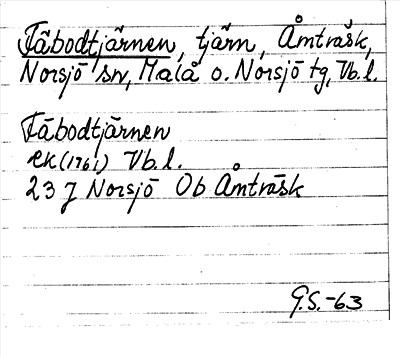 Fäbodtjärnen, tjärn, Åmträsk,
Norsjö sn, Malå o. Norsjö tg, Vb.l.
Fäbodtjärnen
ek (1761) Vb.l.
23 J Norsjö Ob Åmträsk
G.S.-63